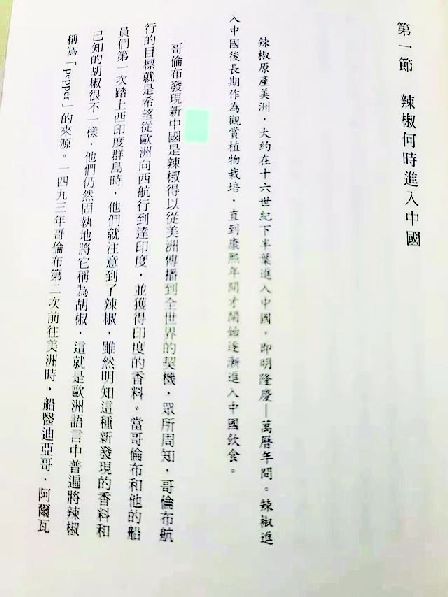 第一節　辣椒何時進入中國
辣椒原產美洲，大約在十六世紀下半葉進入中國，即明隆慶—萬曆年間。辣椒進
入中國後長期作為觀賞植物栽培，直到康熙年間才開始逐漸進入中國飲食。
哥倫布發現新中國是辣椒得以從美洲傳播到全世界的契機，眾所周知，哥倫布航
行的目標就是希望從歐洲向西航行到達印度，並獲得印度的香料。當哥倫布和他的船
員們第一次踏上西印度群島時，他們就注意到了辣椒，雖然明知這種新發現的香料和
已知的胡椒很不一樣，他們仍然固執地將它稱為胡椒，這就是歐洲語言中普遍將辣椒
稱為「pepper」的來源。一四九三年哥倫布第二次前往美洲時，船醫迪亞哥．阿爾瓦